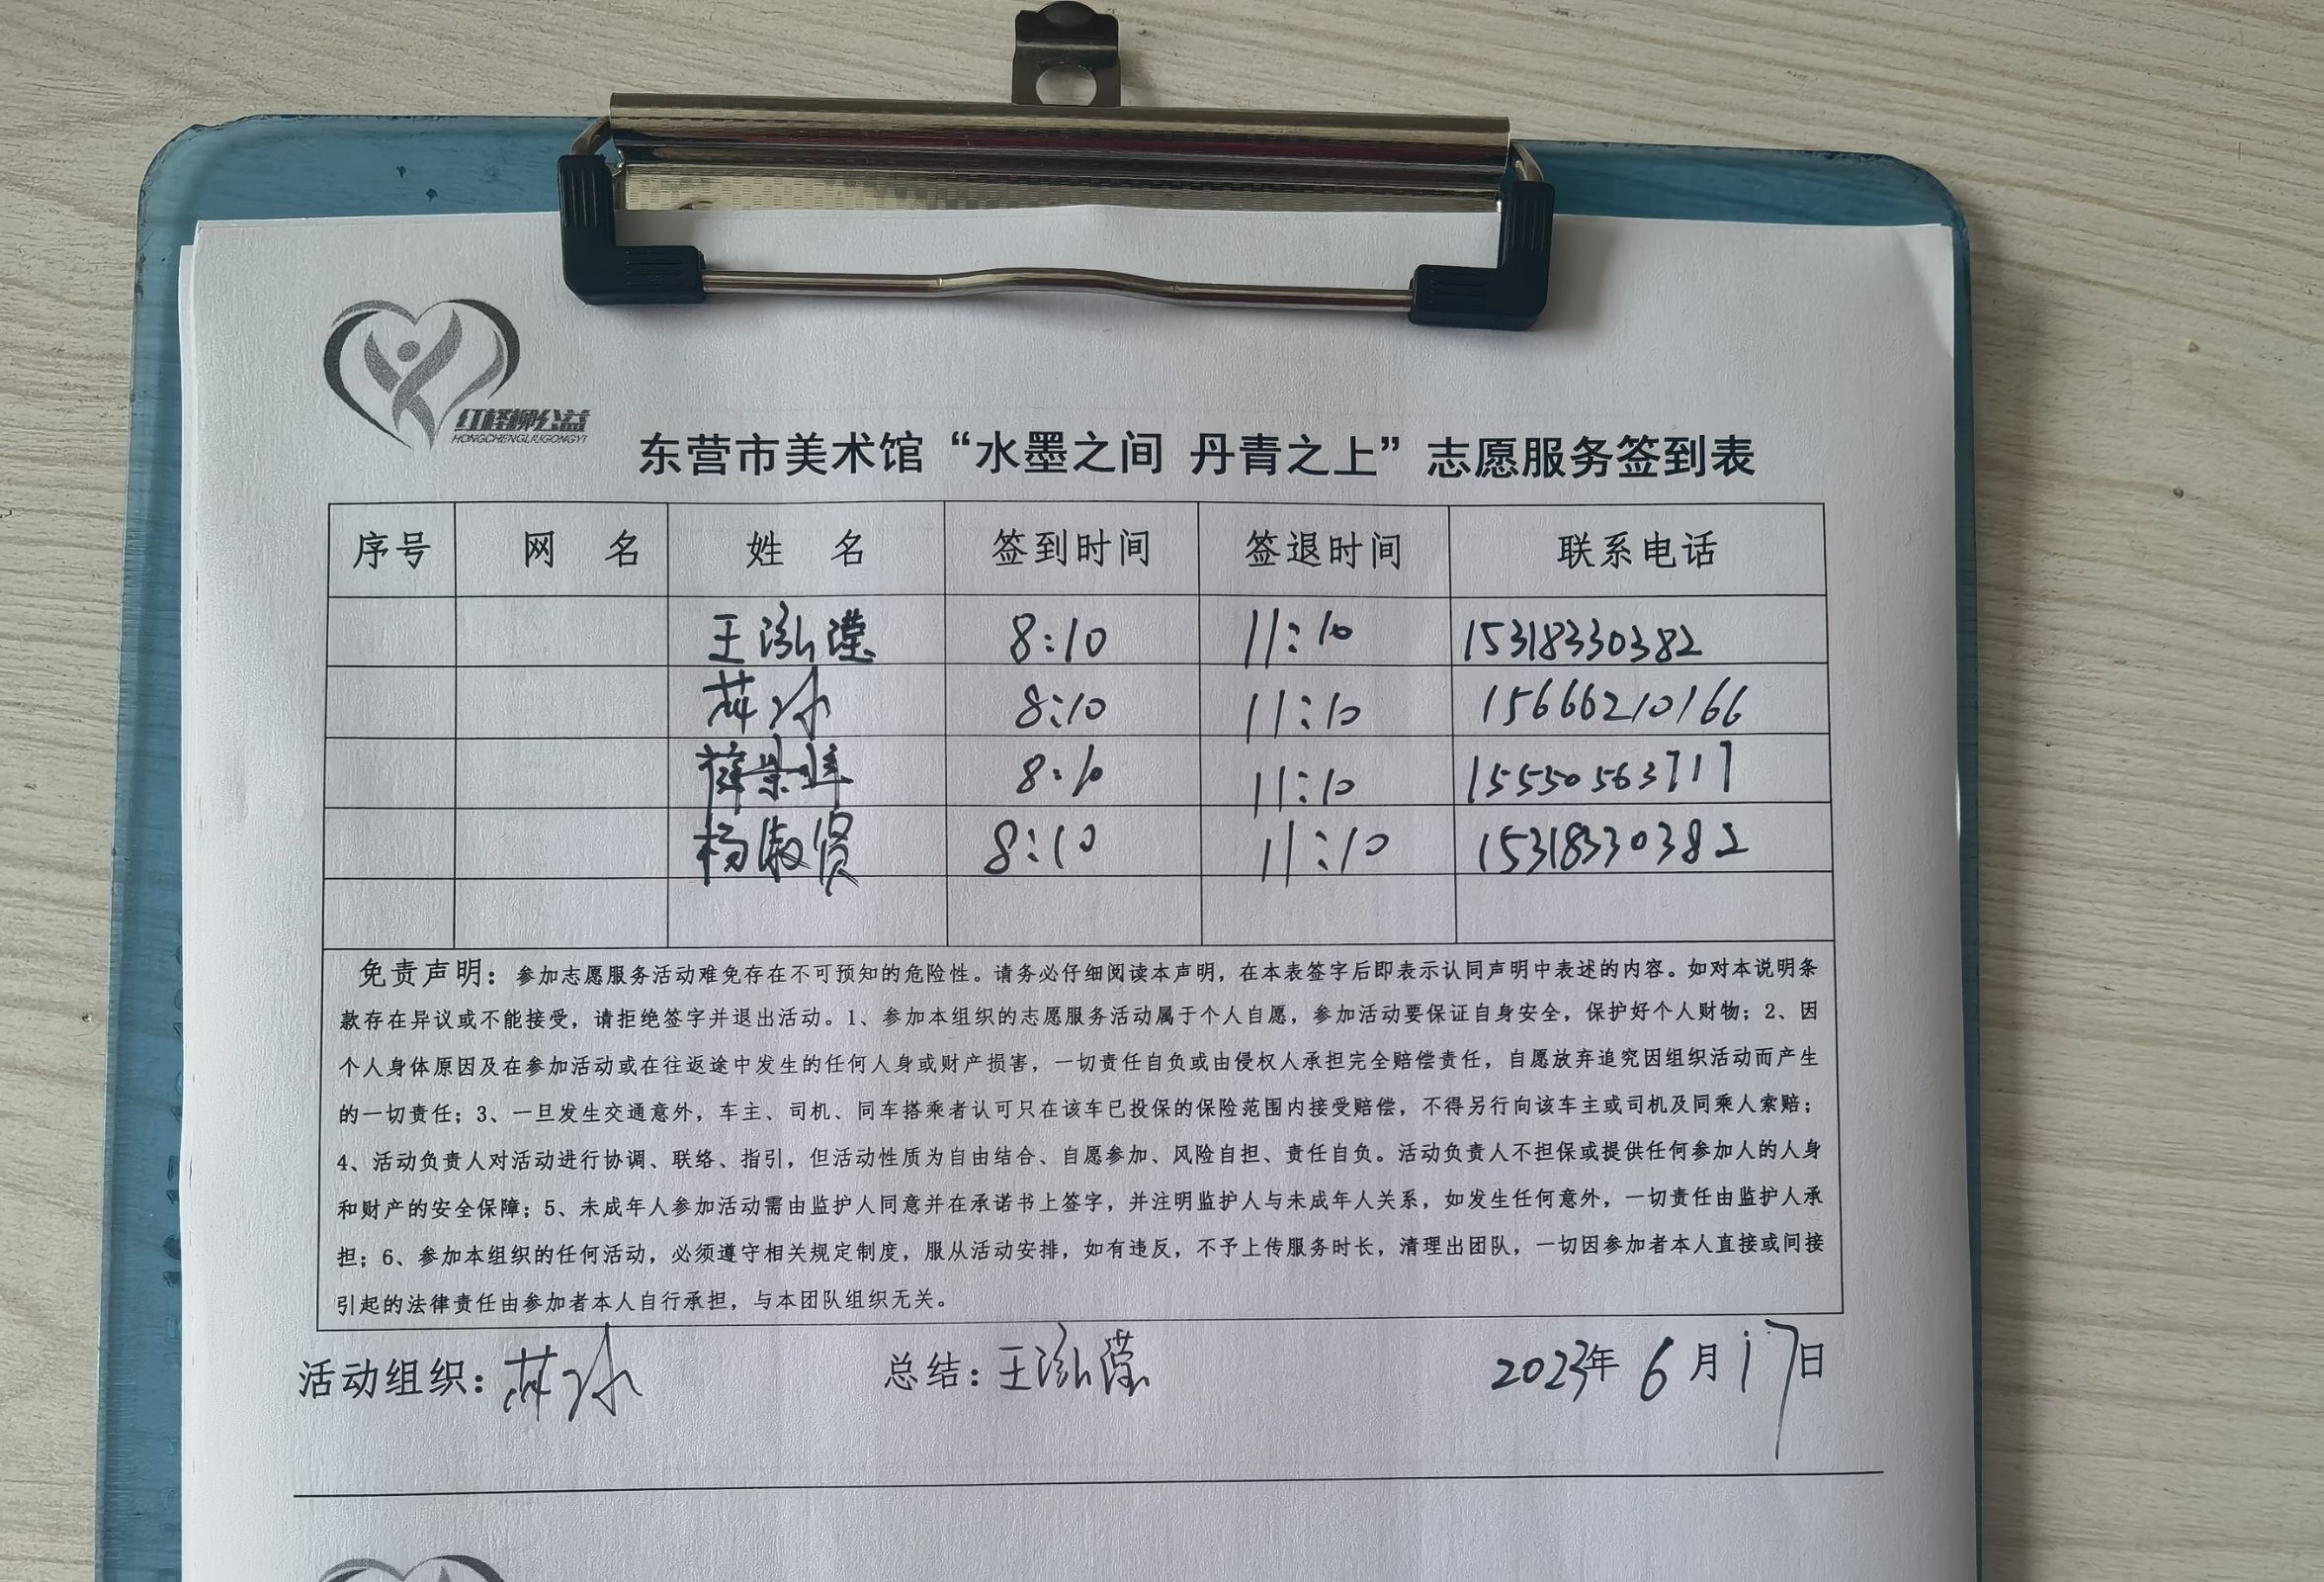 红柽柳公益
HONGCHENGLIUGONGYI
东营市美术馆“水墨之间 丹青之上”志愿服务签到表
序号 网 名 姓 名 签到时间 签退时间 联系电话
王泓滢 8:10 11:10 15318330382
8:10 11:10 15666210166
薛景 8:10 11:10 15550563717
杨淑贤 8:10 11:10 15318330382
免责声明：参加志愿服务活动难免存在不可预知的危险性。请务必仔细阅读本声明，在本表签字后即表示认同声明中表述的内容。如对本说明条
款存在异议或不能接受，请拒绝签字并退出活动。1、参加本组织的志愿服务活动属于个人自愿，参加活动要保证自身安全，保护好个人财物；2、因
个人身体原因及在参加活动或在往返途中发生的任何人身或财产损害，一切责任自负或由侵权人承担完全赔偿责任，自愿放弃追究因组织活动而产生
的一切责任；3、一旦发生交通意外，车主、司机、同车搭乘者认可只在该车已投保的保险范围内接受赔偿，不得另行向该车主或司机及同乘人索赔；
4、活动负责人对活动进行协调、联络、指引，但活动性质为自由结合、自愿参加、风险自担、责任自负。活动负责人不担保或提供任何参加人的人身
和财产的安全保障；5、未成年人参加活动需由监护人同意并在承诺书上签字，并注明监护人与未成年人关系，如发生任何意外，一切责任由监护人承
担；6、参加本组织的任何活动，必须遵守相关规定制度，服从活动安排，如有违反，不予上传服务时长，清理出团队，一切因参加者本人直接或间接
引起的法律责任由参加者本人自行承担，与本团队组织无关。
活动组织： 总结：王泓滢 2023年 6月17日